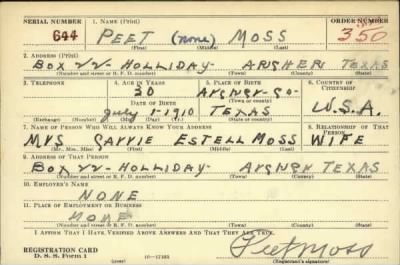 SERIAL NUMBER 1. NAME (Print) ORDER NUMBER
644 PEET (none) MOSS 350
(First) (Middle) (Last)
2. ADDRESS (Print)
BOX VV- HOLLIDAY- ARCHER TEXAS
(Number and street or R. F. D. number) (Town) (County) (State)
3. TELEPHONE 4. AGE IN YEARS 5. PLACE OF BIRTH 6. COUNTRY OF CITIZENSHIP
30 ARCHER-CO-
DATE OF BIRTH (Town or county)
July 1-1910 TEXAS U.S.A.
(Exchange) (Number) (Mo.) (Day) (Yr.) (State or country)
7. NAME OF PERSON WHO WILL ALWAYS KNOW YOUR ADDRESS 8. RELATIONSHIP OF THAT PERSON
MRS ESTELL MOSS WIFE
(Mr., Mrs., Miss) (First) (Middle) (Last)
9. ADDRESS OF THAT PERSON
BOX VV-HOLLIDAY- ARCHER TEXAS
(Number and street or R. F. D. number) (Town) (County) (State)
10. EMPLOYER'S NAME
NONE
11. PLACE OF EMPLOYMENT OR BUSINESS
NONE
(Number and street or R. F. D. number) (Town) (County) (State)
I AFFIRM THAT I HAVE VERIFIED ABOVE ANSWERS AND THAT THEY ARE TRUE.
REGISTRATION CARD Peet Moss
D. S. S. Form 1 16-17105 (Registrant's signature)